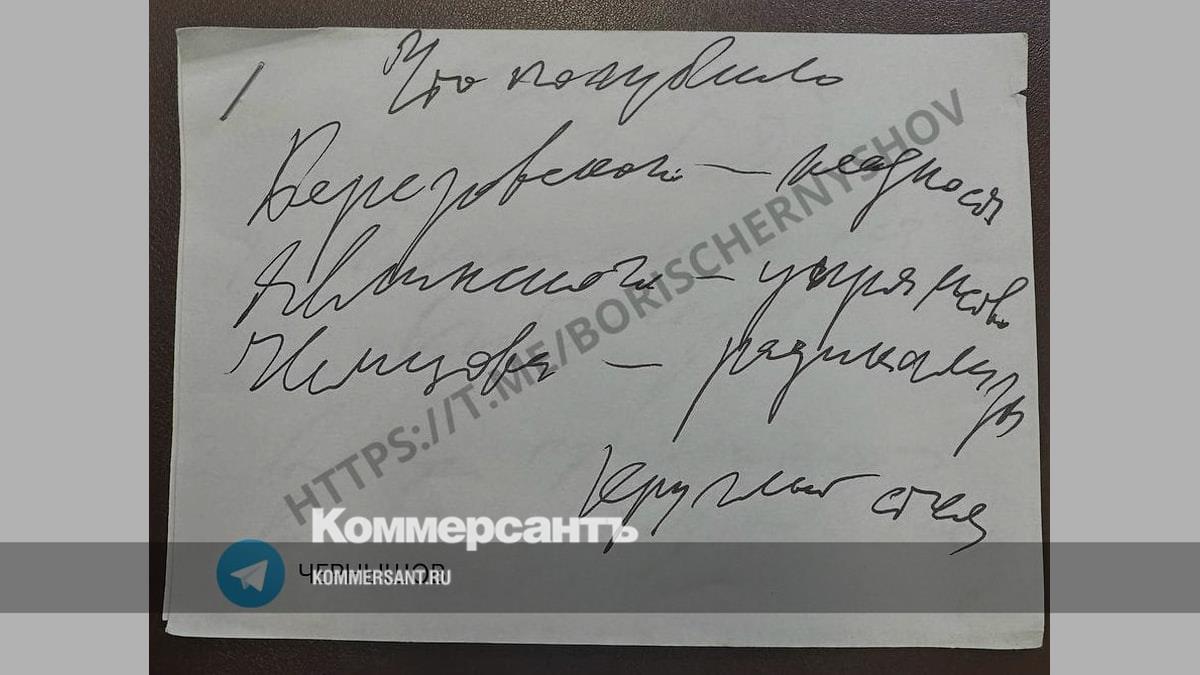 1 Что погубило
Березовского – жадность
Явлинского – упрямство
Немцова – радикализм
круглый стол
HTTPS://T.ME/BORISCHERNYSHOV
Коммерсантъ
ЧЕРНЫШОВ
KOMMERSANT.RU